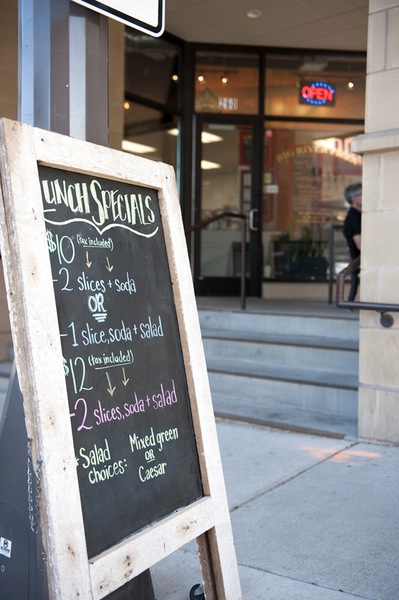 OPEN
LUNCH SPECIALS
$10 (tax included)
-2 slices + soda
OR
-1 slice, soda + salad
$12 (tax included)
-2 slices, soda + salad
Salad choices:
Mixed green
OR
Caesar